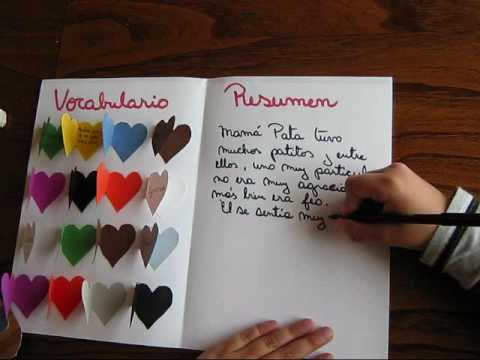 Vocabulario
Resumen
Mamá Pata tuvo
muchos patitos y entre
ellos, uno muy particul
no era muy agraciad
más bien era feo.
El se sentía muy